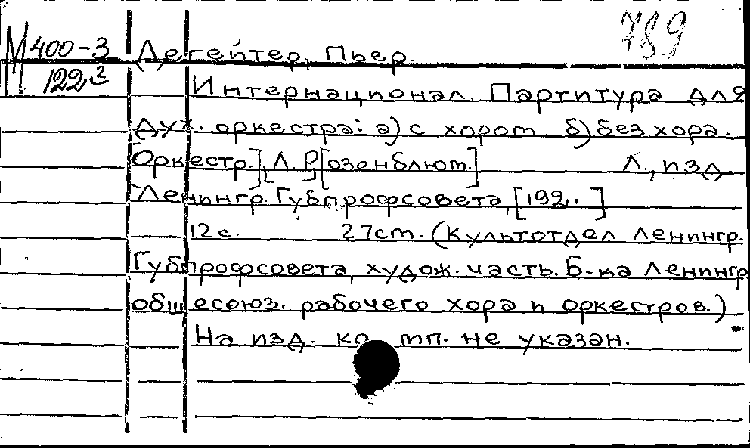 789
М 400-3 Дегейтер, Пьер.
122³
Интернационал. Партитура для
дух. оркестра: а) с хором б) без хора.
Оркестр.], Л. Р[озенблюм.] Л., изд
Ленингр. Губпрофсовета, [192.. ]
12 с. 27 cm. (Культотдел Ленингр.
Губпрофсовета, худож. часть. Б-ка Ленингр
общесоюз. рабочего хора и оркестров.)
На изд. комп. не указан.